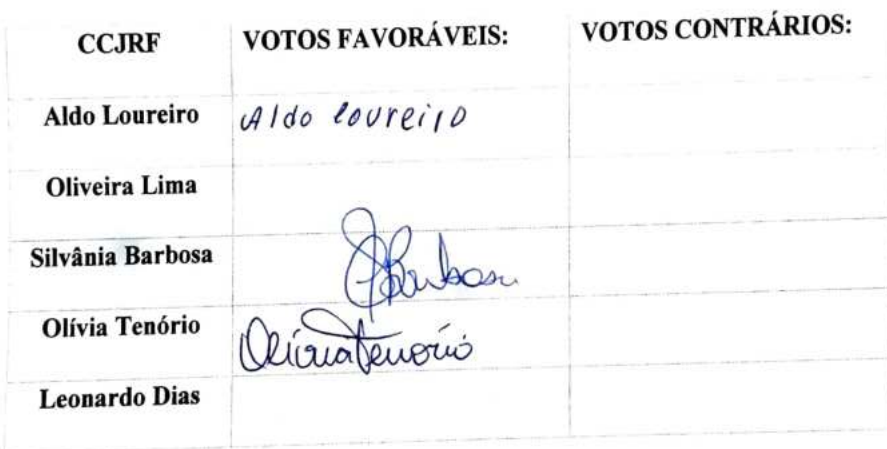 CCJRF VOTOS FAVORÁVEIS: VOTOS CONTRÁRIOS:
Aldo Loureiro Aldo Loureiro
Oliveira Lima
Silvânia Barbosa SBarbosa
Olívia Tenório Olívia Tenório
Leonardo Dias